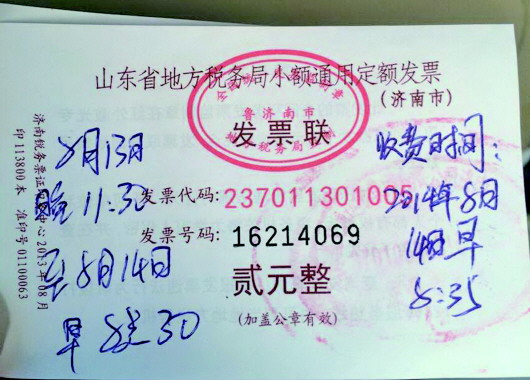 山东省地方税务局小额通用定额发票
(济南市)
鲁济南市
发票联
发票代码:237011301005
发票号码:16214069
贰元整
(加盖公章有效)
8月13日
晚11:30
至8月14日
早 30
收费时间:
2014年8月
14日早
8:35
济南税务票证 中心2013年08月
印113800本 准印号01100063